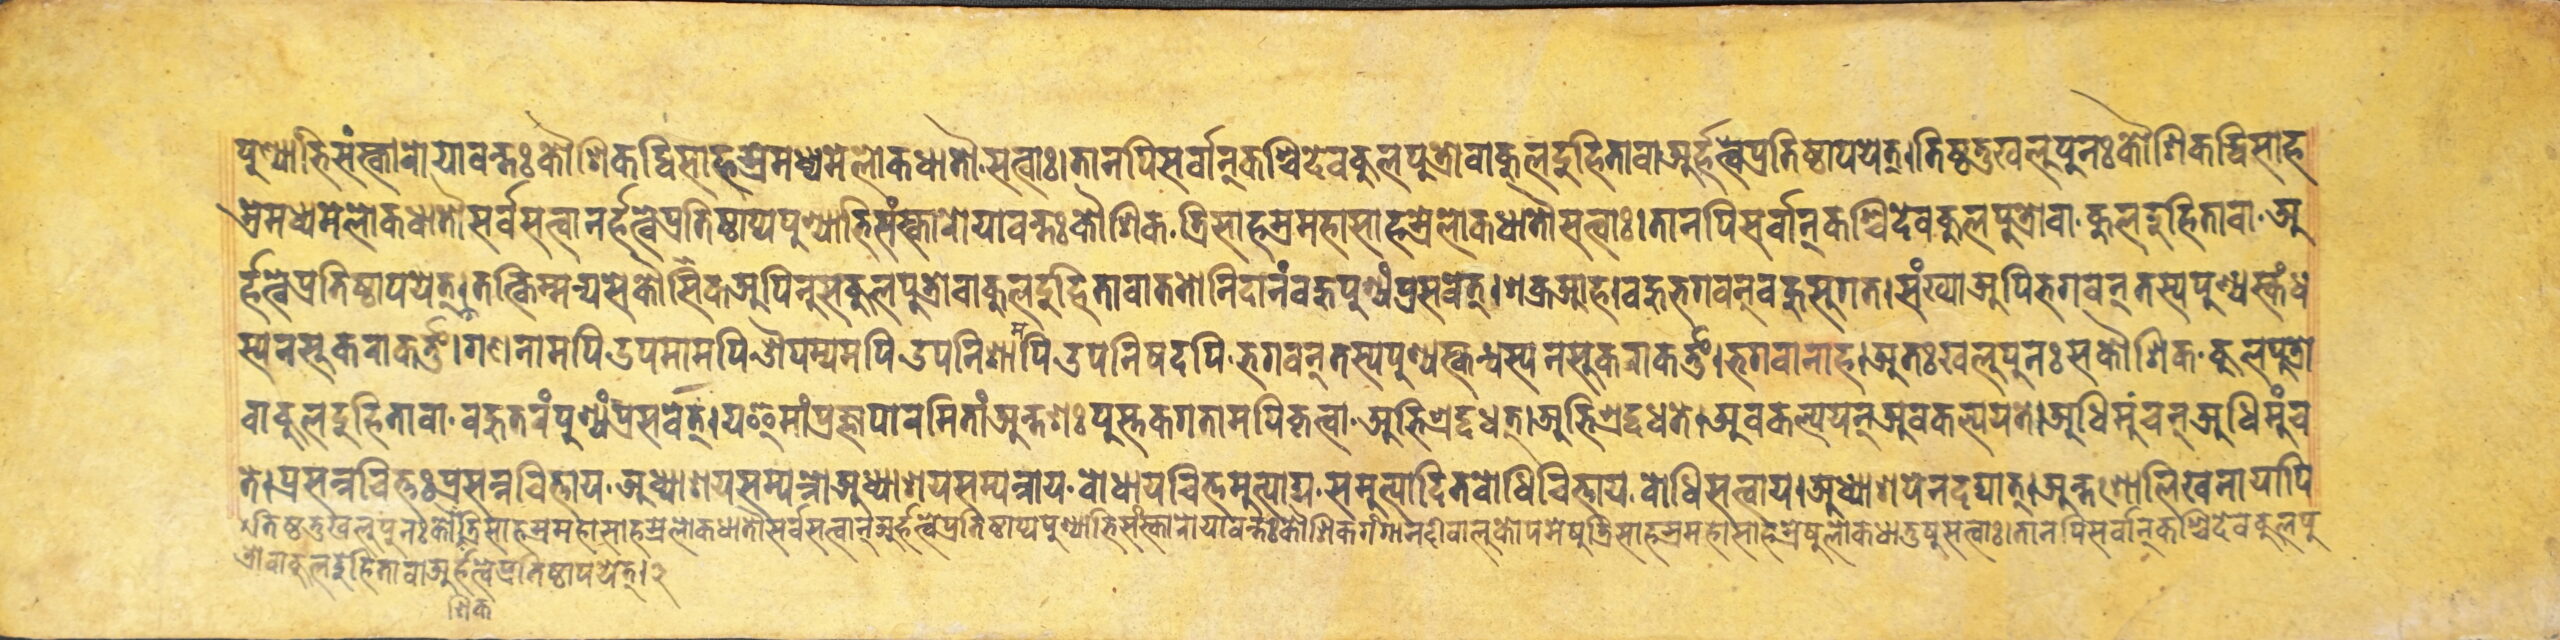 पुण्याभिसंस्कारो यावन्तः कौशिक द्विसाहस्रे मध्यमे लोकधातौ सत्वाः। तानपि सर्वान् कश्चिदेव कुलपुत्रो वा कुलदुहिता वा अर्हत्वे प्रतिष्ठापयेत्। तिष्ठतु खलु पुनः कौशिक द्विसाह
स्रे मध्यमे लोकधातौ सर्वसत्वानर्हत्वे प्रतिष्ठाप्य पुण्याभिसंस्कारो यावन्तः कौशिक त्रिसाहस्रमहासाहस्रे लोकधातौ सत्वाः। तानपि सर्वान् कश्चिदेव कुलपुत्रो वा कुलदुहिता वा अ
र्हत्वे प्रतिष्ठापयेत्। तत्किम्मन्यसे कौसिक अपि नु स कुलपुत्रो वा कुलदुहिता वा ततो निदानं बहुपुण्यं प्रसवेत्। शक्र आह। बहु भगवन् बहु सुगत। संख्या अपि भगवन् तस्य पुण्यस्कंध
स्य न सुकरा कर्त्तुं। गणनामपि उपमामपि औपम्यमपि उपनिशामपि उपनिषदपि भगवन् तस्य पुण्यस्कन्धस्य न सुकरा कर्त्तुं। भगवानाह। अतः खलु पुनः स कौशिक कुलपुत्रो
वा कुलदुहिता वा बहुतरं पुण्यं प्रसवेत्। य इमां प्रज्ञापारमितां अन्तशः पुस्तकगतामपि कृत्वा अभिश्रद्दधत्। अभिश्रद्दधते। अवकल्पयन् अवकल्पयते। अधिमुंचन् अधिमुंच
ते। प्रसन्नचित्तः प्रसन्नचित्ताय अध्याशयसम्पन्नो अध्याशयसम्पन्नाय बोधाय चित्तमुत्पाद्य समुत्पादितबोधिचित्ताय बोधिसत्वाय। अध्याशयेन दद्यात्। अन्तशो लिखनायापि
तिष्ठतु खलु पुनः कौ त्रिसाहस्रमहासाहस्रे लोकधातौ सर्वसत्वान् अर्हत्वे प्रतिष्ठाप्य पुण्याभिसंस्कारो यावन्तः कौशिक गंगानदीवालुकोपमेषु त्रिसाहस्रमहासाहस्रेषु लोकधातुषु सत्वाः। तानपि सर्वान् कश्चिदेव कुलपु
त्रो वा कुलदुहिता वा अर्हत्वे प्रतिष्ठापयेत्। २
शिक